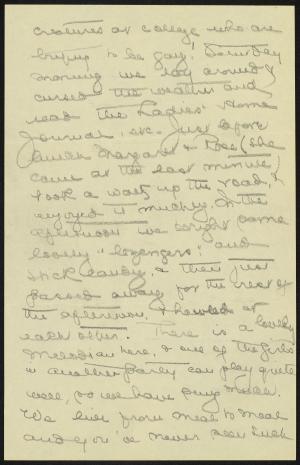 creatures at college who are
trying to be gay. Sunday
morning we lay around &
cursed the weather and
read the Ladies' Home
Journal, etc. Just before
Margaret & Rose (she
came at the last minute)
took a walk up the road, &
enjoyed it muchly. In the
afternoon we bought some
"lozengers" and
stick candy, & then just
away for the rest of
the afternoon, & howled at
each other. There is a lovely
melodian here, & one of the girls
in another party can play quite
well, so we have sung much.
We live from meal to meal
and you've never seen such